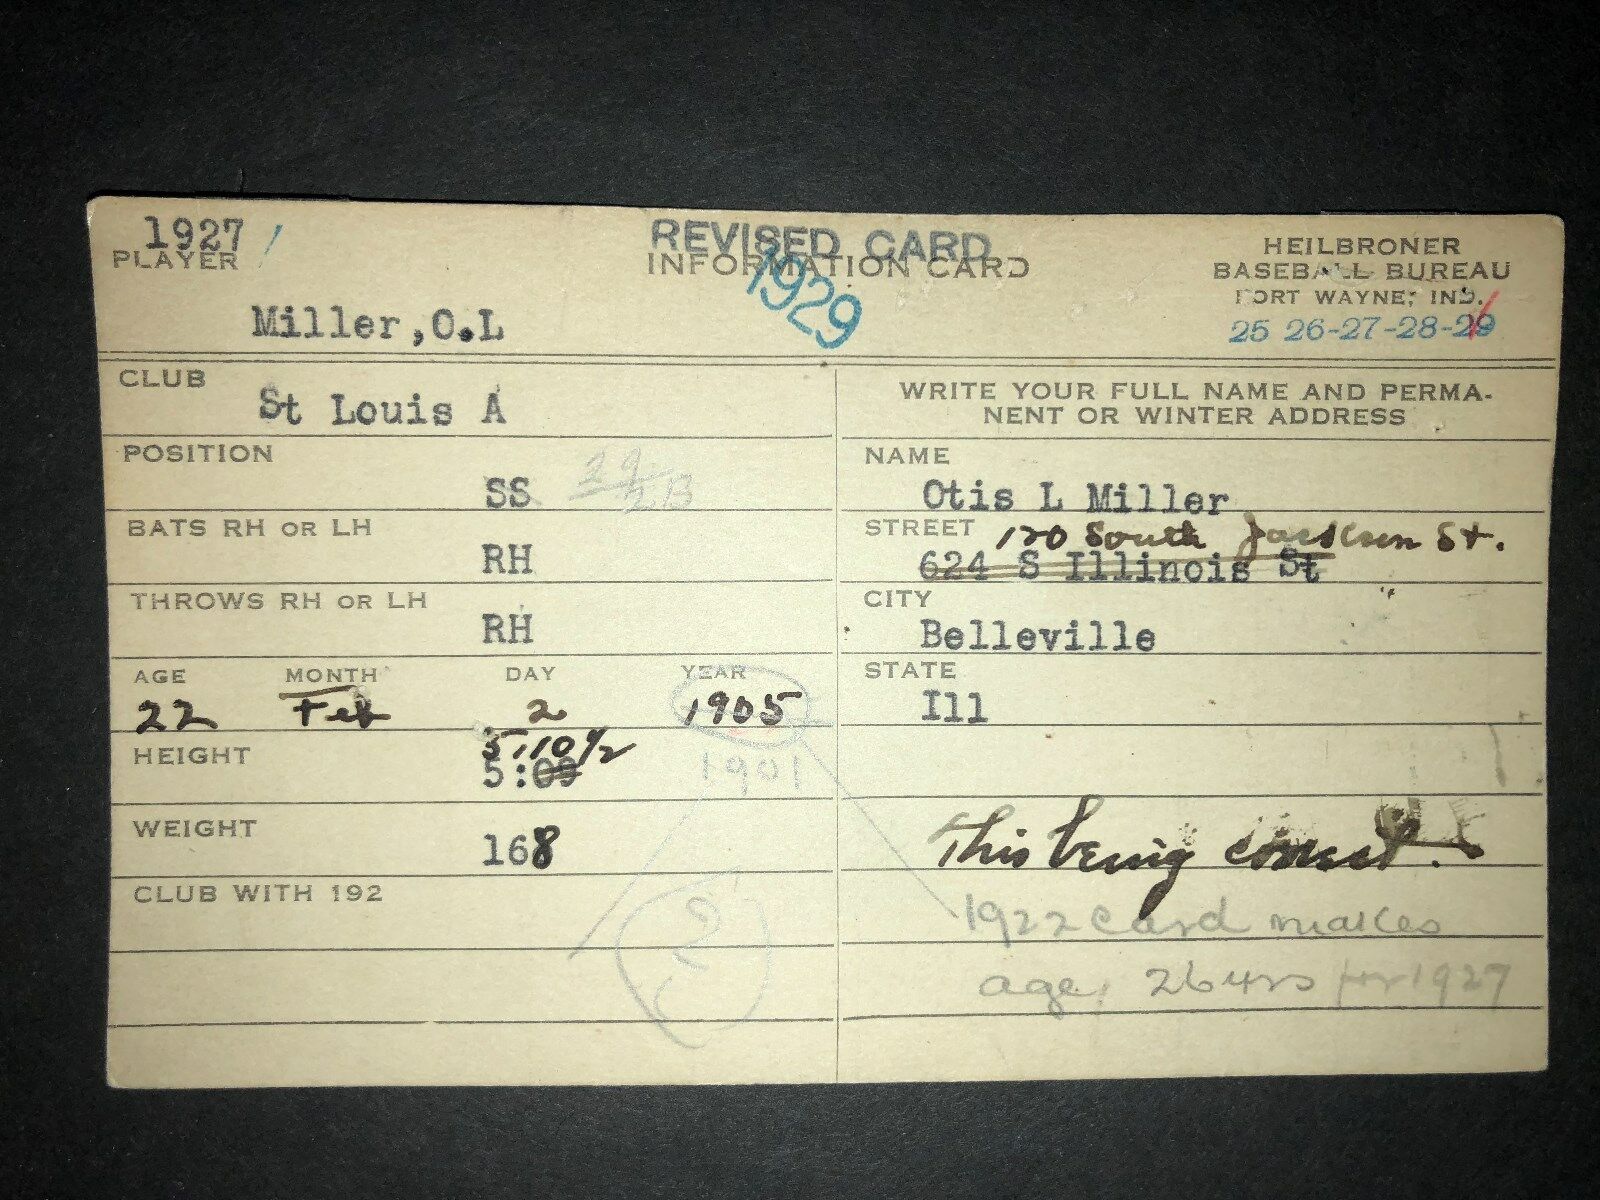 1927
PLAYER
REVISED CARD
INFORMATION CARD
1929
HEILBRONER
BASEBALL BUREAU
FORT WAYNE, IND.
25 26-27-28-29
Miller,O.L
CLUB
St Louis A
WRITE YOUR FULL NAME AND PERMA-
NENT OR WINTER ADDRESS
POSITION
SS 29 2B
NAME
Otis L Miller
BATS RH OR LH
RH
STREET 120 South Jackson St.
624 S Illinois St
THROWS RH OR LH
RH
CITY
Belleville
AGE MONTH DAY YEAR
22 Feb 2 1905
STATE
Ill
HEIGHT
5,10 1/2
5:09
1901
WEIGHT
168
This being correct.
CLUB WITH 192
?
1922 card makes
age, 26 yrs for 1927